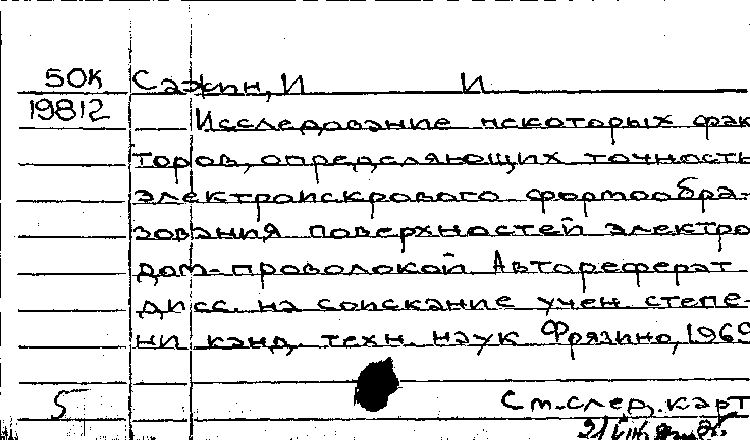 50К Сажин, И И
19812 Исследование некоторых фак
торов, определяющих точность
электроискрового формообра-
зования поверхностей электро
дом-проволокой Автореферат
дисс. на соискание учен степе-
ни канд. техн. наук Фрязино, 1969
5 См.след.карт